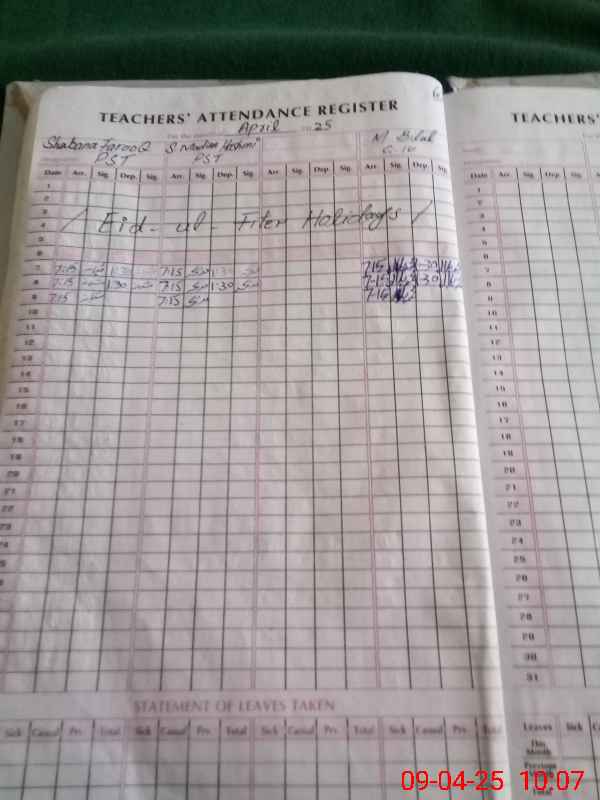 TEACHERS' ATTENDANCE REGISTER
For the month of April 2025
Shabana Farooq S. Nadia Hashmi M. Bilal
PST PST C. IV
Date Arr. Sig. Dep. Sig. Arr. Sig. Dep. Sig. Arr. Sig. Dep. Sig. Arr. Sig. Dep. Sig.
1
2
3
4 / Eid-ul-Fiter Holidays /
5
6
7 7:15 1:30 7:15 1:30 7:15 1:30
8 7:15 1:30 7:15 1:30 7:15 1:30
9 7:15 7:15 7:15
10
11
12
13
14
15
16
17
18
19
20
21
22
23
24
25
STATEMENT OF LEAVES TAKEN
Sick Casual Prv. Total Sick Casual Prv. Total Sick Casual Prv. Total Sick Casual Prv. Total
TEACHERS'
Date Arr. Sig. Dep. Sig.
1
2
3
4
5
6
7
8
9
10
11
12
13
14
15
16
17
18
19
20
21
22
23
24
25
26
27
28
29
30
31
Leaves Sick
This Month
Previous
Total
09-04-25 10:07